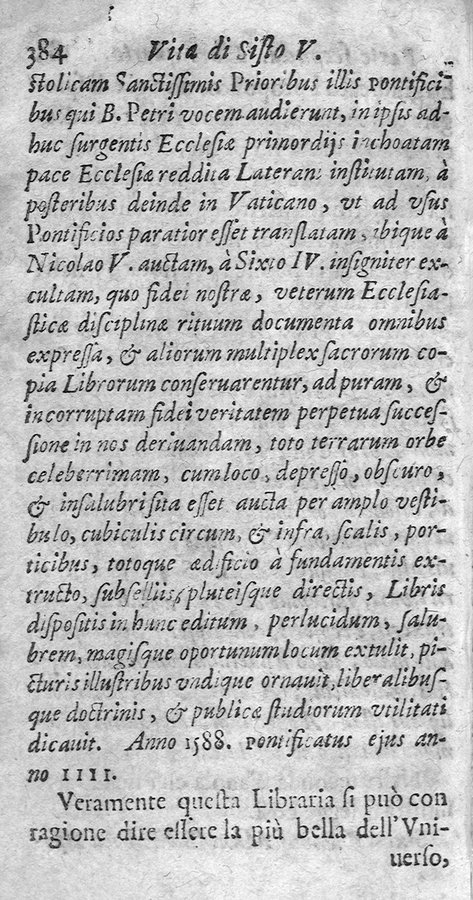 384 Vita di Sisto V.
stolicam Sanctissimis Prioribus illis pontifici-
bus qui B. Petri vocem audierunt, in ipsis ad-
huc surgentis Ecclesiæ primordijs inchoatam
pace Ecclesiæ reddita Laterani institutam, à
posteribus deinde in Vaticano, vt ad vsus
Pontificios paratior esset translatam, ibique à
Nicolao V. auctam, à Sixto IV. insigniter ex-
cultam, quo fidei nostræ, veterum Ecclesia-
sticæ disciplinæ rituum documenta omnibus
expressa, & aliorum multiplex sacrorum co-
pia Librorum conseruarentur, ad puram, &
incorruptam fidei veritatem perpetua succes-
sione in nos deriuandam, toto terrarum orbe
celeberrimam, cum loco, depresso, obscuro,
& insalubri sita esset aucta per amplo vesti-
bulo, cubiculis circum, & infra, scalis, por-
ticibus, totoque ædificio à fundamentis ex-
tructo, subselliis, pluteisque directis, Libris
dispositis in hunc editum, perlucidum, salu-
brem, magisque oportunum locum extulit, pi-
cturis illustribus vndique ornauit, liberalibus-
que doctrinis, & publicæ studiorum vtilitati
dicauit. Anno 1588. pontificatus ejus an-
no IIII.
Veramente questa Libraria si può con
ragione dire essere la più bella dell'Vni-
uerso,